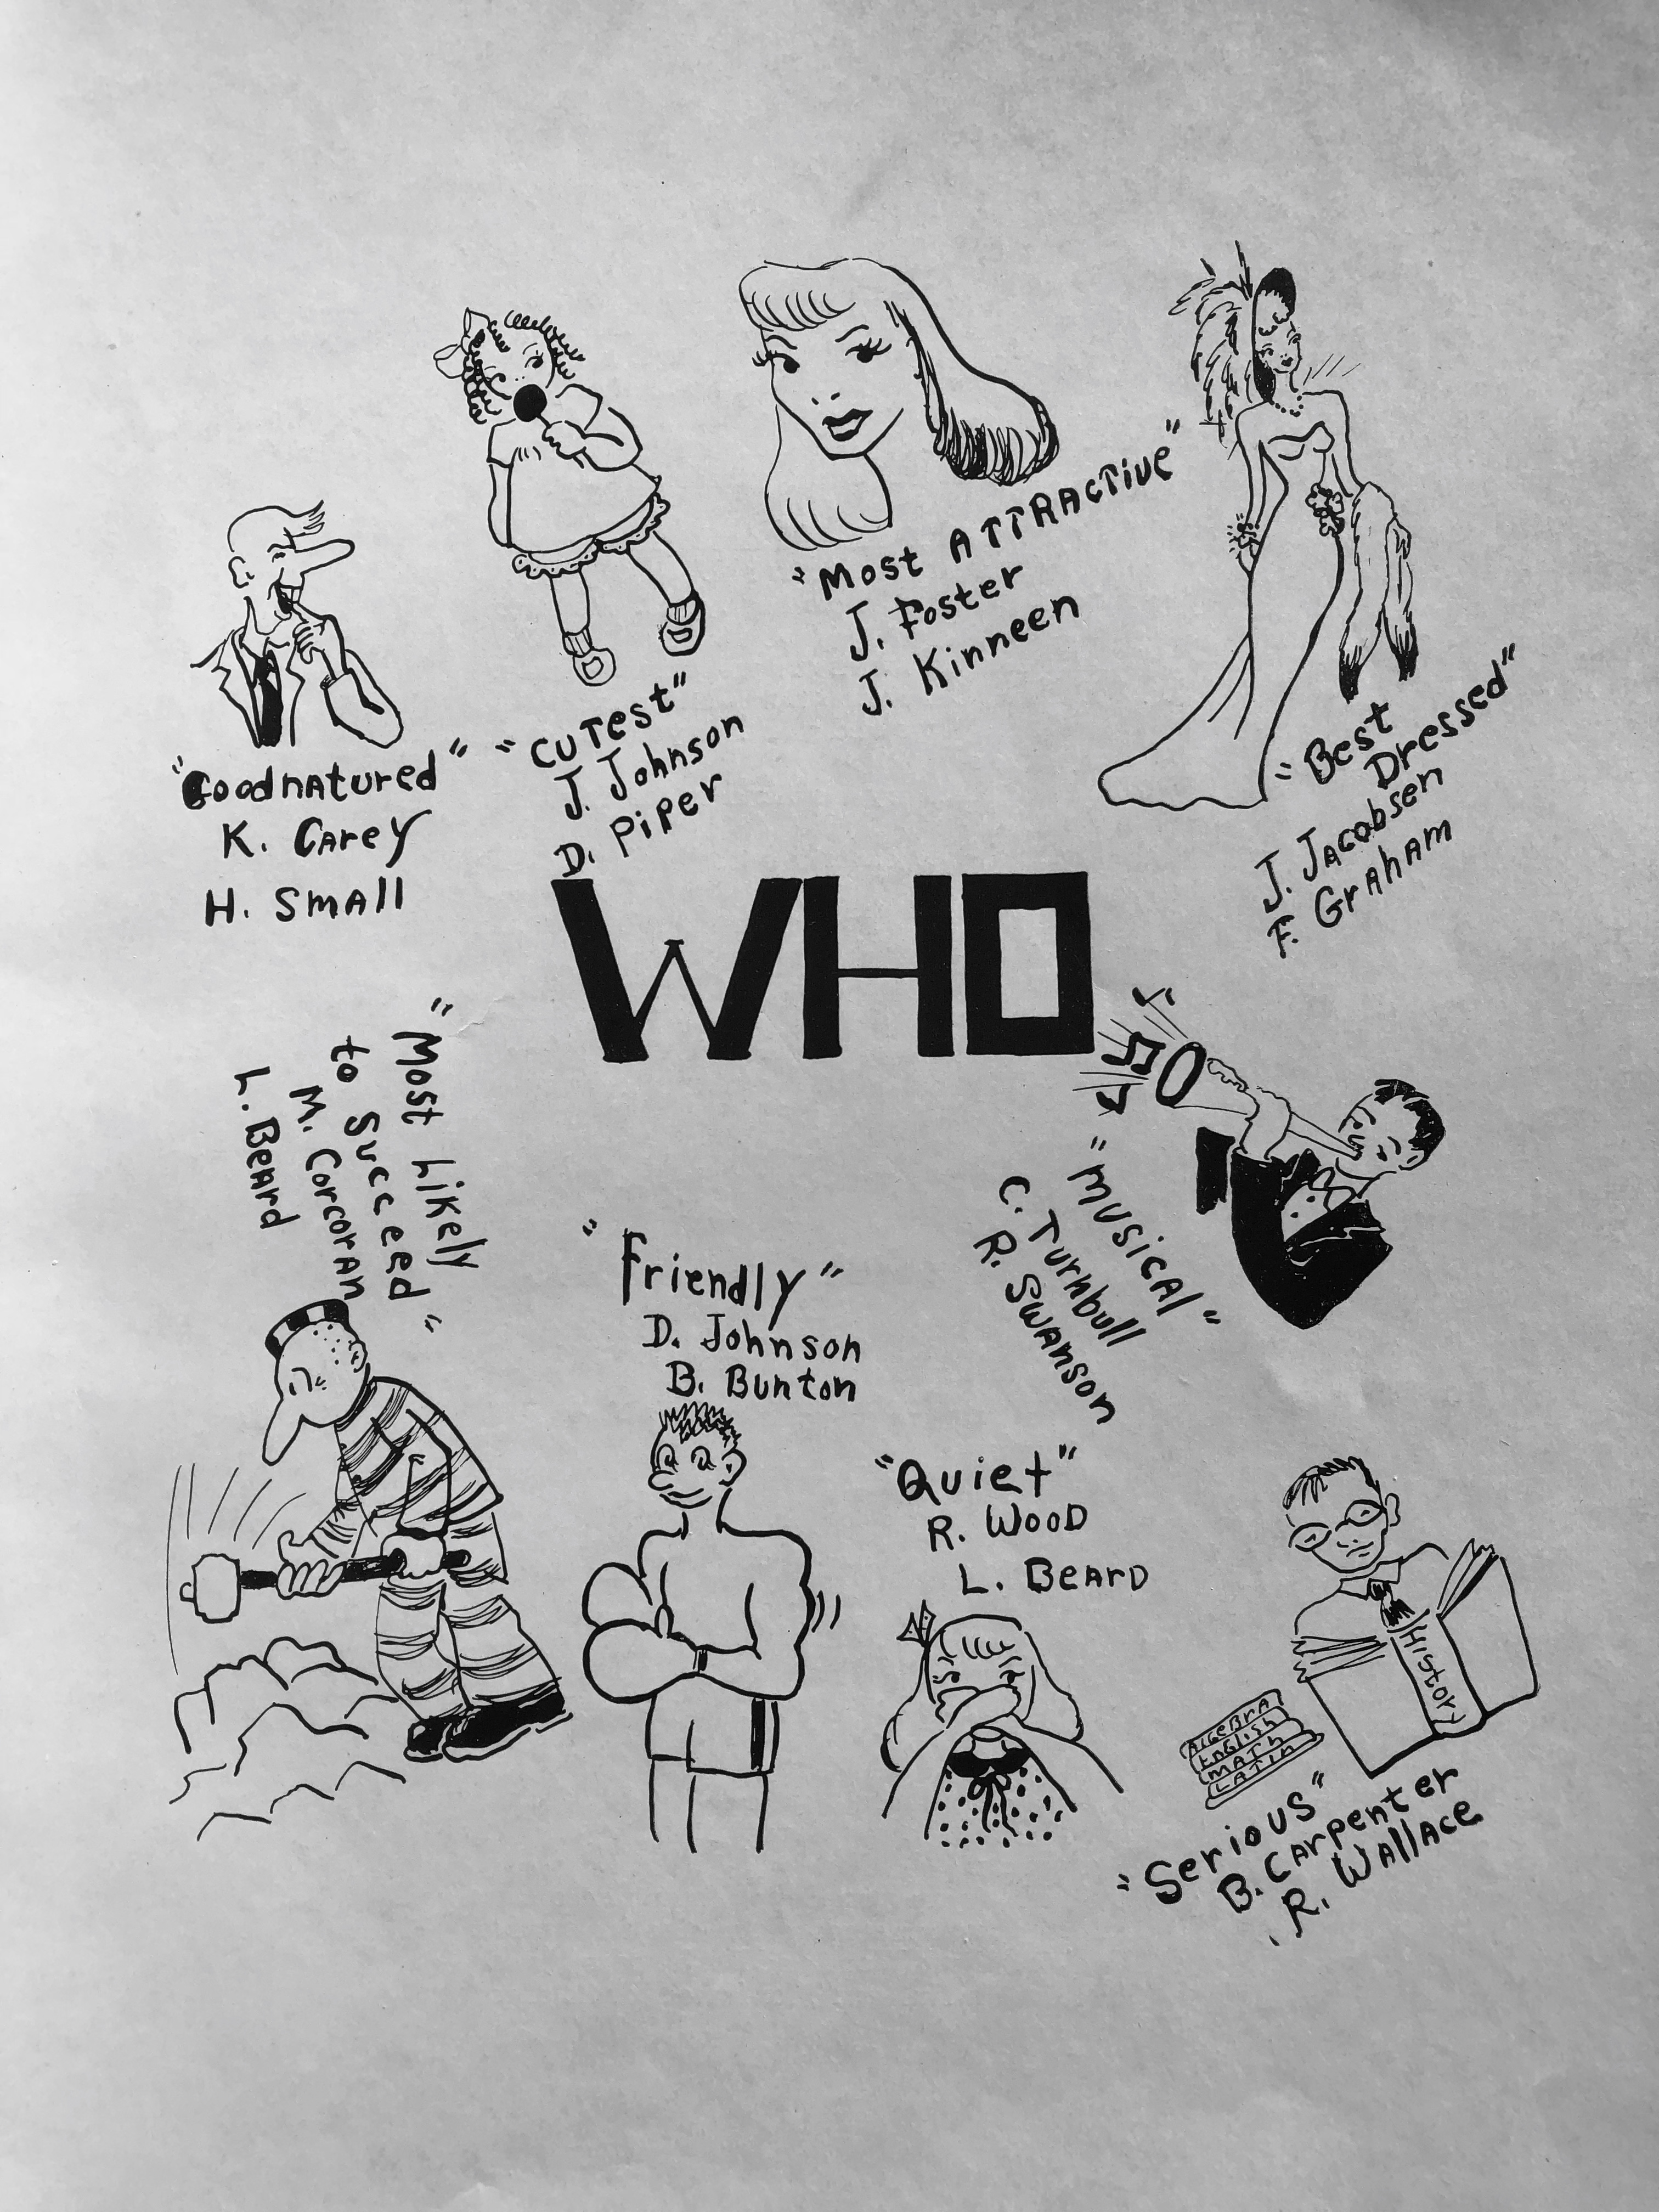 "Goodnatured"
K. Carey
H. Small
"Cutest"
J. Johnson
D. Piper
"Most Attractive"
J. Foster
J. Kinneen
"Best
Dressed"
J. Jacobsen
F. Graham
WHO
"Most Likely
to Succeed"
M. Corcoran
L. Beard
"Friendly"
D. Johnson
B. Bunton
"Musical"
C. Turnbull
R. Swanson
"Quiet"
R. Wood
L. Beard
History
Algebra
English
Math
Latin
"Serious"
B. Carpenter
R. Wallace